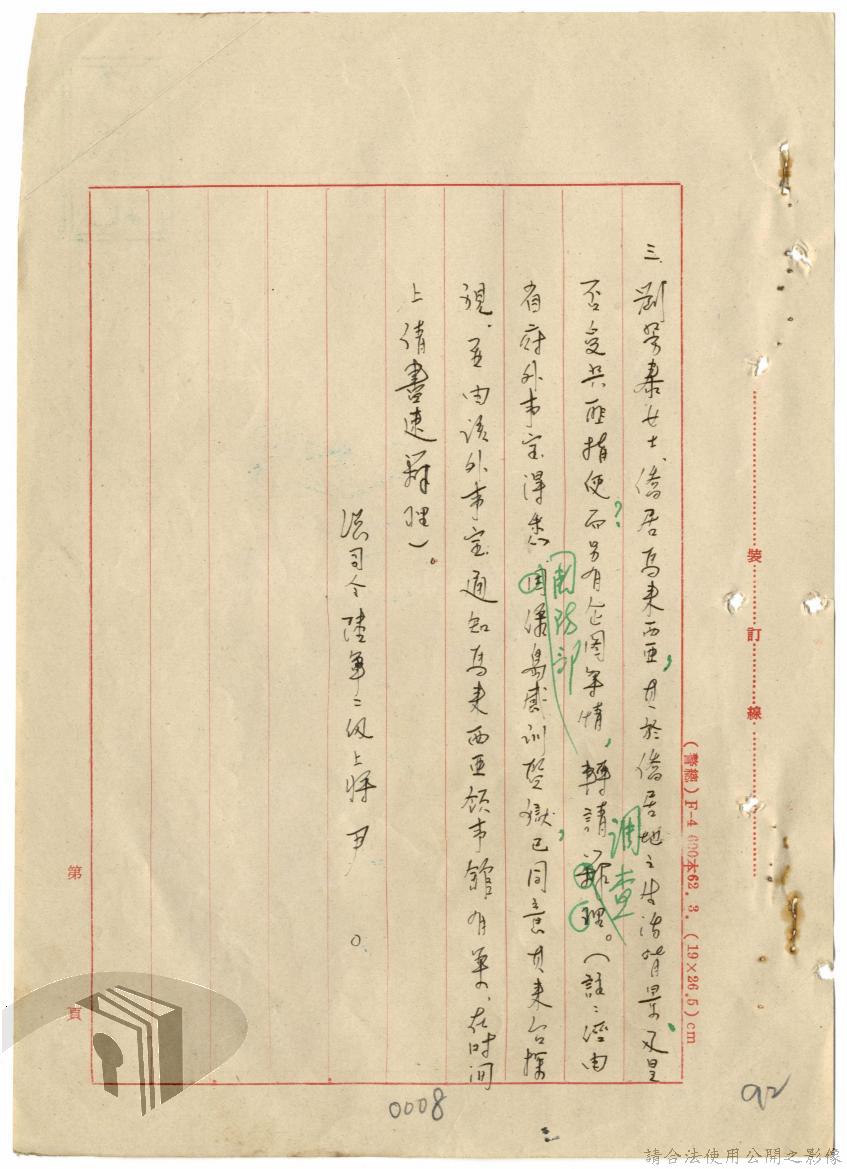 三、劉琴泰女士、僑居馬來西亞，其於僑居地之生活背景、又是
否受共匪指使？而另有企圖等情，轉請辦理。（註：經由
調查
省府外事室得悉國綠島感訓監獄，已同意其來台探
國防部
視、並由該外事室通知馬來西亞領事館有案、在時間
上請書速辦理）。
司令陸軍二級上將尹 。
裝訂線
(警總) F-4 600本62. 3. (19×26.5)cm
第 頁
0008
92
三
請合法使用公開之影像